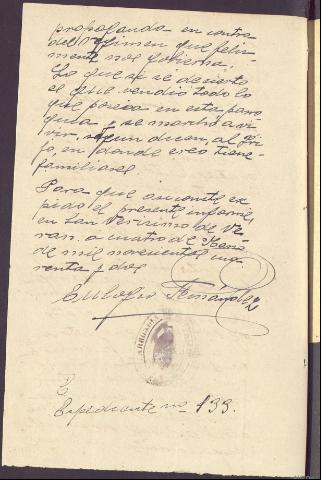 propaganda en contra
del Regimen que feliz-
mente nos gobierna.
Lo que sí se de cierto
es que vendio todo lo
que poseia en esta parro
quia y se marchó a vi-
vir, según dicen, al Gi-
jo, en donde creo tiene
familiares.
Para que asi conste ex-
pido el presente informe,
en San Verisimo de
a cuatro de
de mil novecientos cua-
renta y dos
Eulogio Fernández
Expediente nº 133.